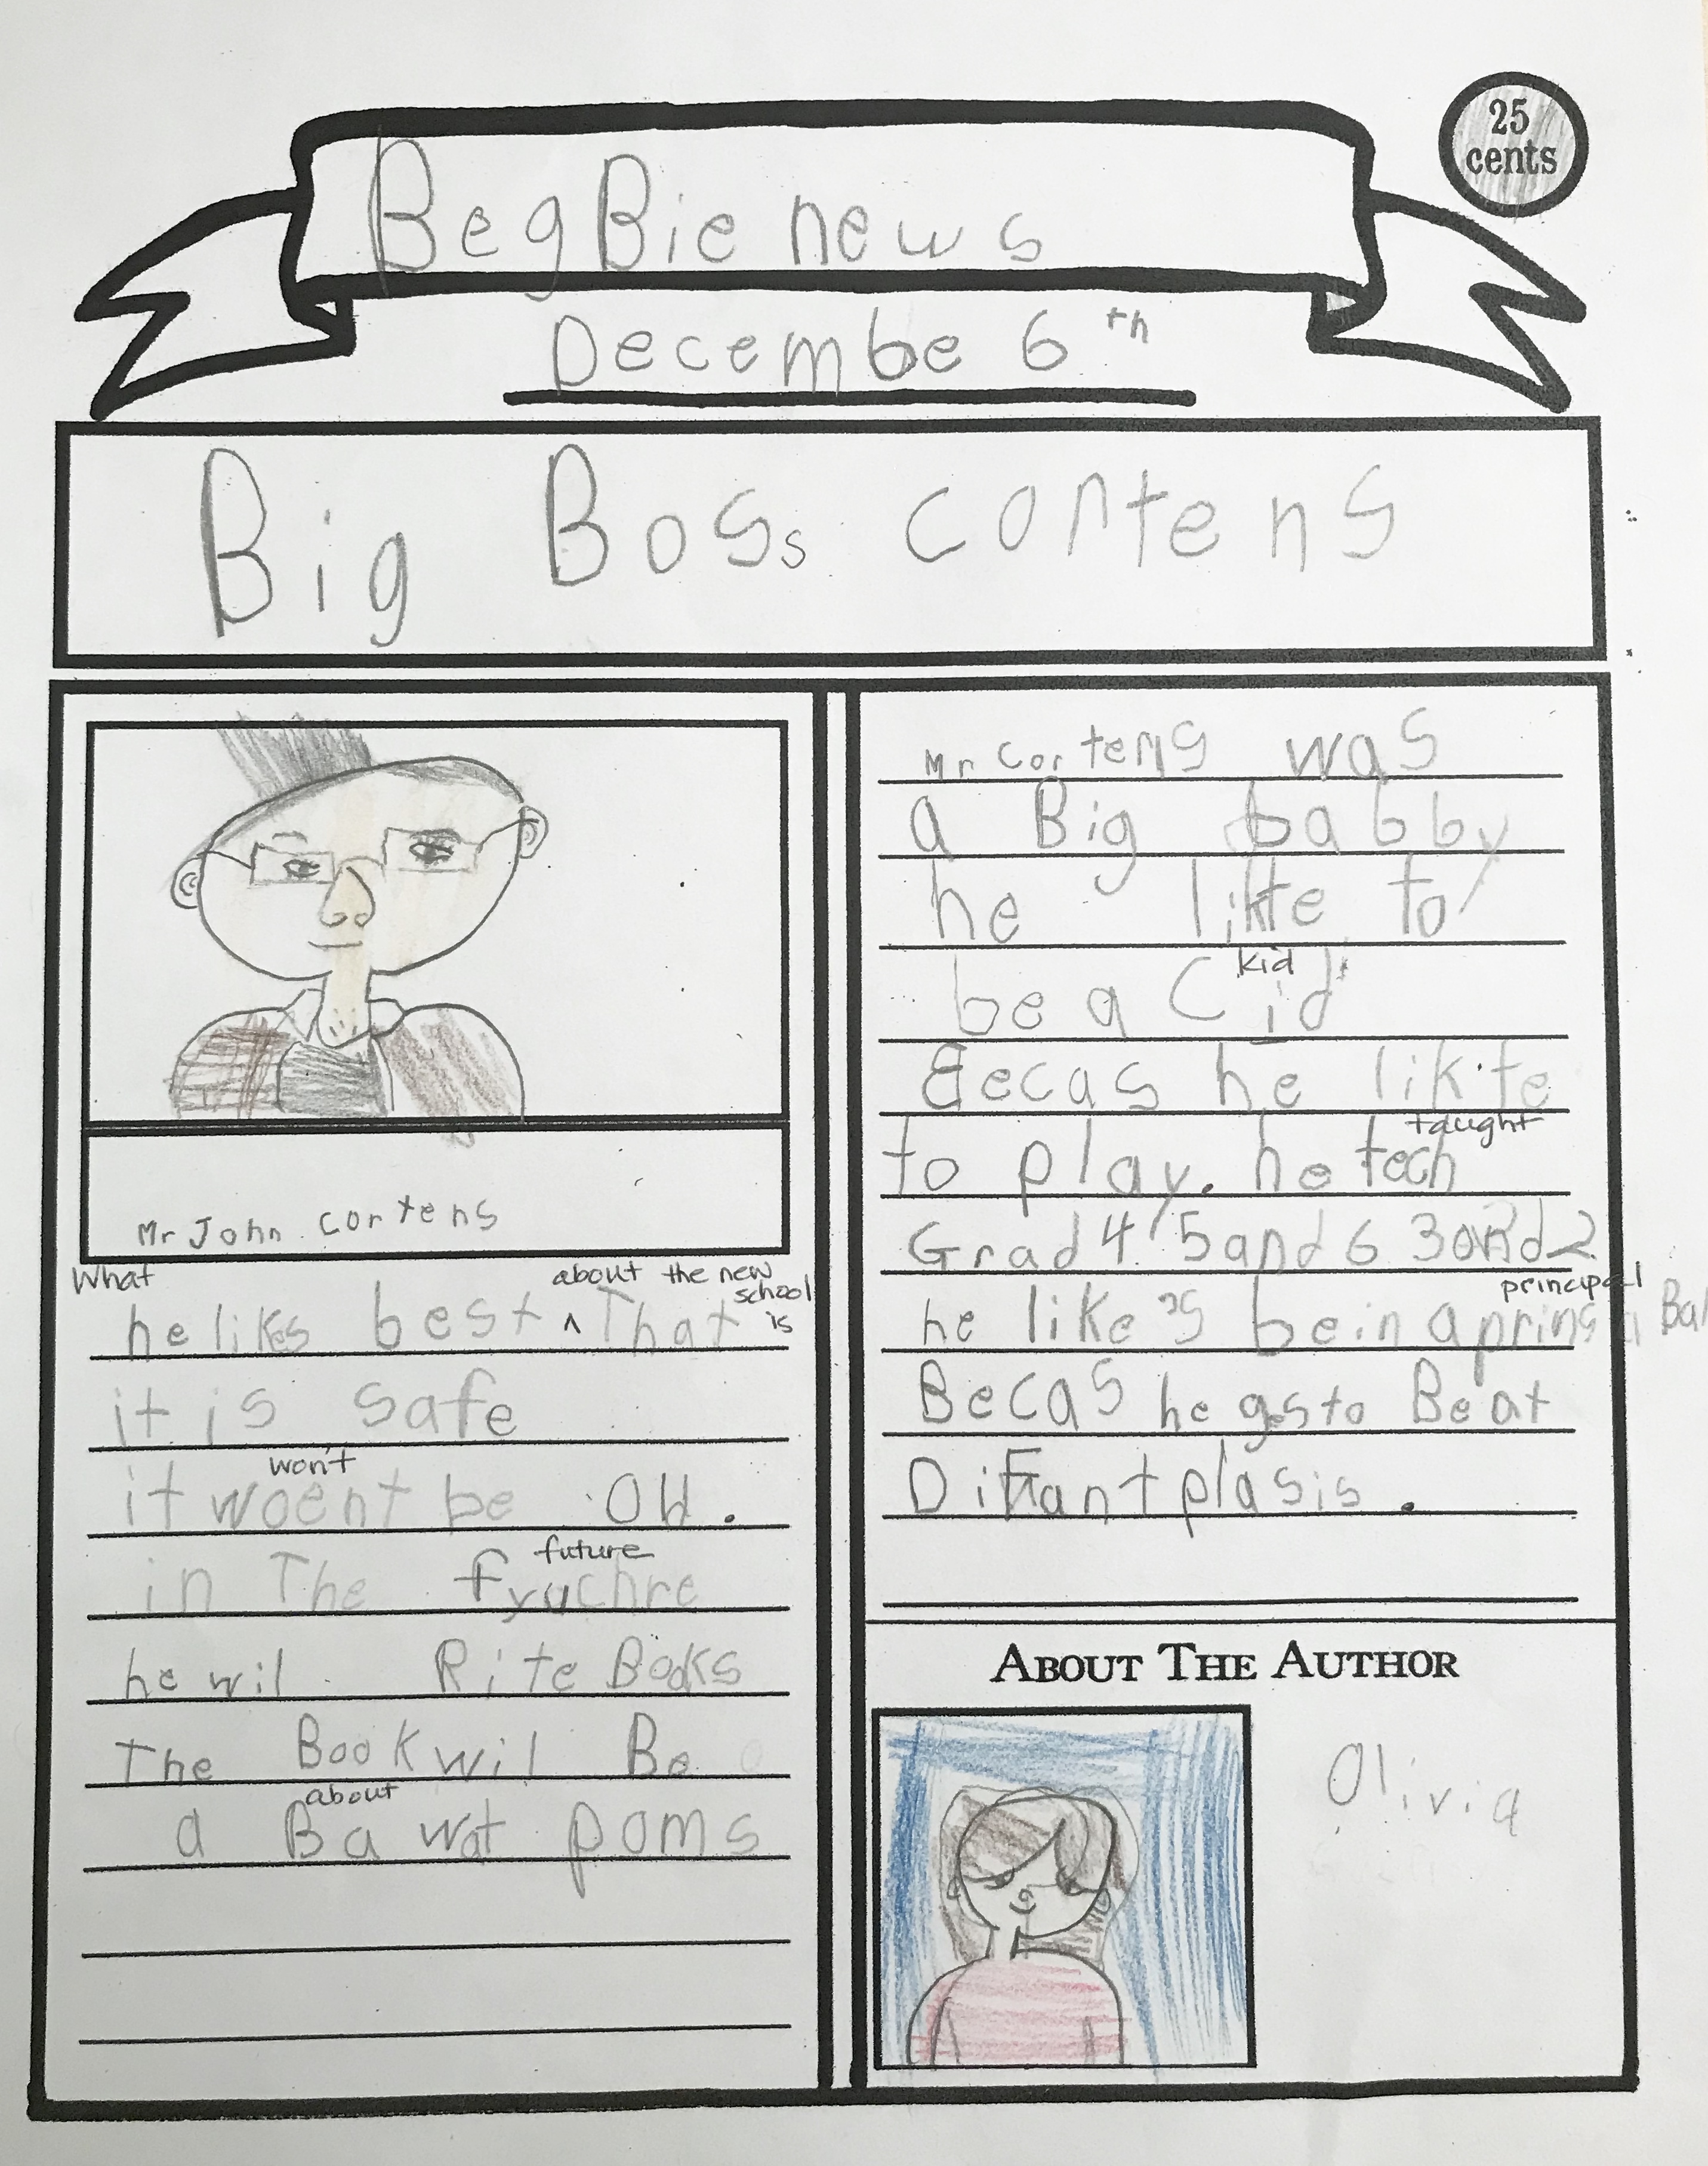 25
cents
BegBie news
Decembe 6th
Big Boss cortens
Mr John cortens
What about the new school is
he likes best ^ That
it is safe
won't
it woent be Old.
future
in The fyuchre
he wil Rite Books
The Book wil Be
about
a Ba wat poms
Mr Cortens was
a Big babby
he likte to
kid
be a Cid
Becas he likte
taught
to play. he tech
Grad 4 5 and 6 3 and 2
principal
he like's bein a prins a Bal
Becas he gesto Be at
Diffant plasis.
ABOUT THE AUTHOR
Olivia